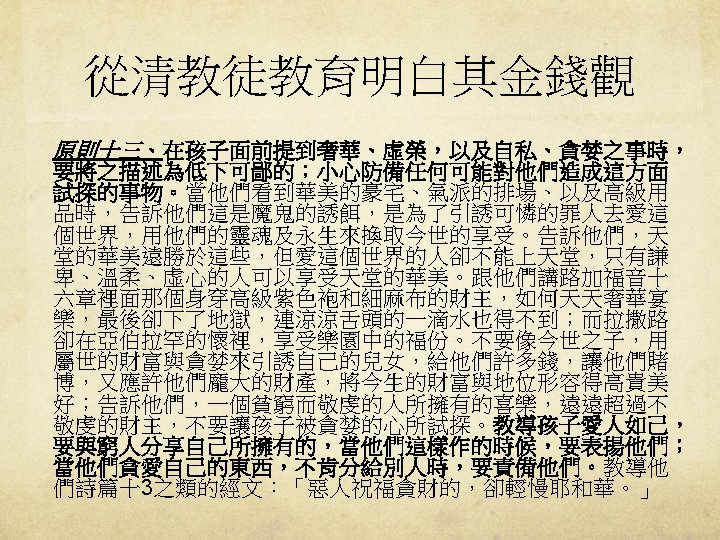 從清教徒教育明白其金錢觀
原則十三、在孩子面前提到奢華、虛榮，以及自私、貪婪之事時，
要將之描述為低下可鄙的；小心防備任何可能對他們造成這方面
試探的事物。當他們看到華美的豪宅、氣派的排場、以及高級用
品時，告訴他們這是魔鬼的誘餌，是為了引誘可憐的罪人去愛這
個世界，用他們的靈魂及永生來換取今世的享受。告訴他們，天
堂的華美遠勝於這些，但愛這個世界的人卻不能上天堂，只有謙
卑、溫柔、虛心的人可以享受天堂的華美。跟他們講路加福音十
六章裡面那個身穿高級紫色袍和細麻布的財主，如何天天奢華宴
樂，最後卻下了地獄，連涼涼舌頭的一滴水也得不到；而拉撒路
卻在亞伯拉罕的懷裡，享受樂園中的福份。不要像今世之子，用
屬世的財富與貪婪來引誘自己的兒女，給他們許多錢，讓他們賭
博，又應許他們龐大的財產，將今生的財富與地位形容得高貴美
好；告訴他們，一個貧窮而敬虔的人所擁有的喜樂，遠遠超過不
敬虔的財主，不要讓孩子被貪婪的心所試探。教導孩子愛人如己，
要與窮人分享自己所擁有的，當他們這樣作的時候，要表揚他們；
當他們貪愛自己的東西，不肯分給別人時，要責備他們。教導他
們詩篇十3之類的經文：「惡人祝福貪財的，卻輕慢耶和華。」